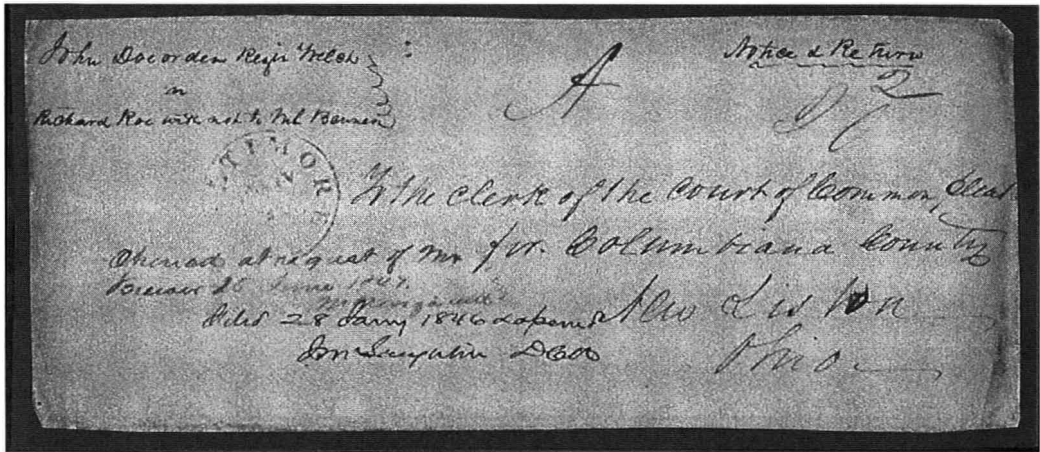 John Doe ex dem Regis Welch
vs
Richard Roe with not to Wl Bennen
A
Notice & Return
2
TIMOR
To the Clerk of the Court of Common Pleas
for Columbiana County
New Lisbon
Ohio
Opened at request of Mr
June
Filed 28 Jany 1846 & opened